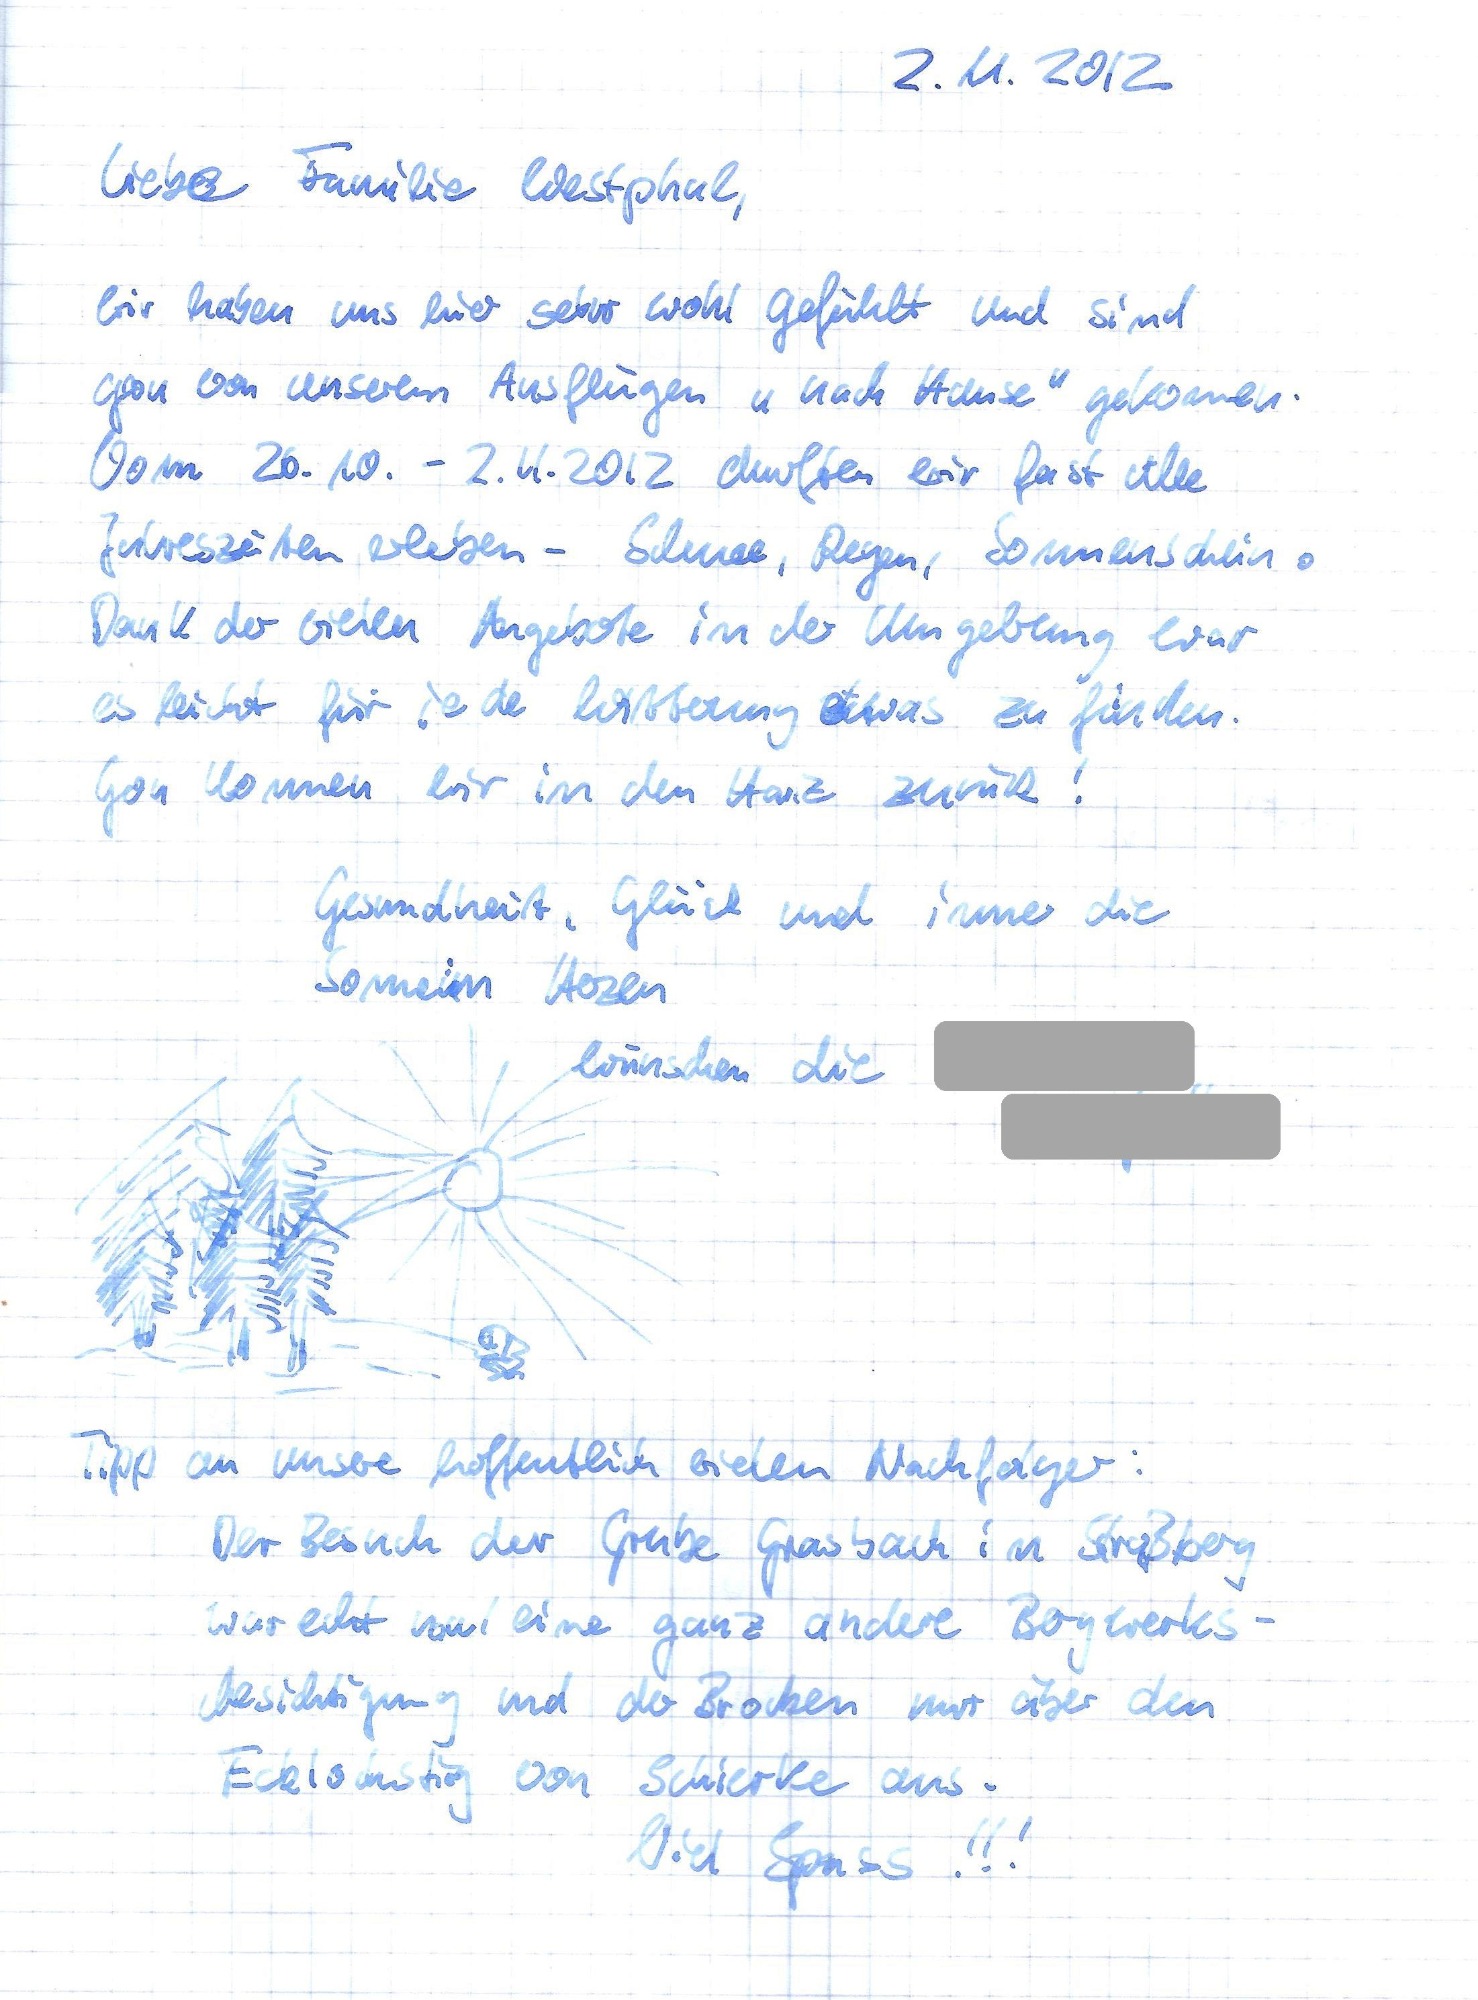 2.11.2012
Liebe Familie Westphal,
wir haben uns hier sehr wohl gefühlt und sind
gern von unseren Ausflügen "nach Hause" gekommen.
Vom 20.10. - 2.11.2012 durften wir fast alle
Jahreszeiten erleben - Schnee, Regen, Sonnenschein.
Dank der vielen Angebote in der Umgebung war
es leicht für jede Witterung etwas zu finden.
Gern kommen wir in den Harz zurück!
Gesundheit, Glück und immer die
Sonne im Herzen
wünschen die
Tipp an unsere hoffentlich vielen Nachfolger:
Der Besuch der Grube Glasebach in Straßberg
war echt mal eine ganz andere Bergwerks-
besichtigung und der Brocken nur über den
Eckerlochstieg von Schierke aus.
Viel Spass !!!